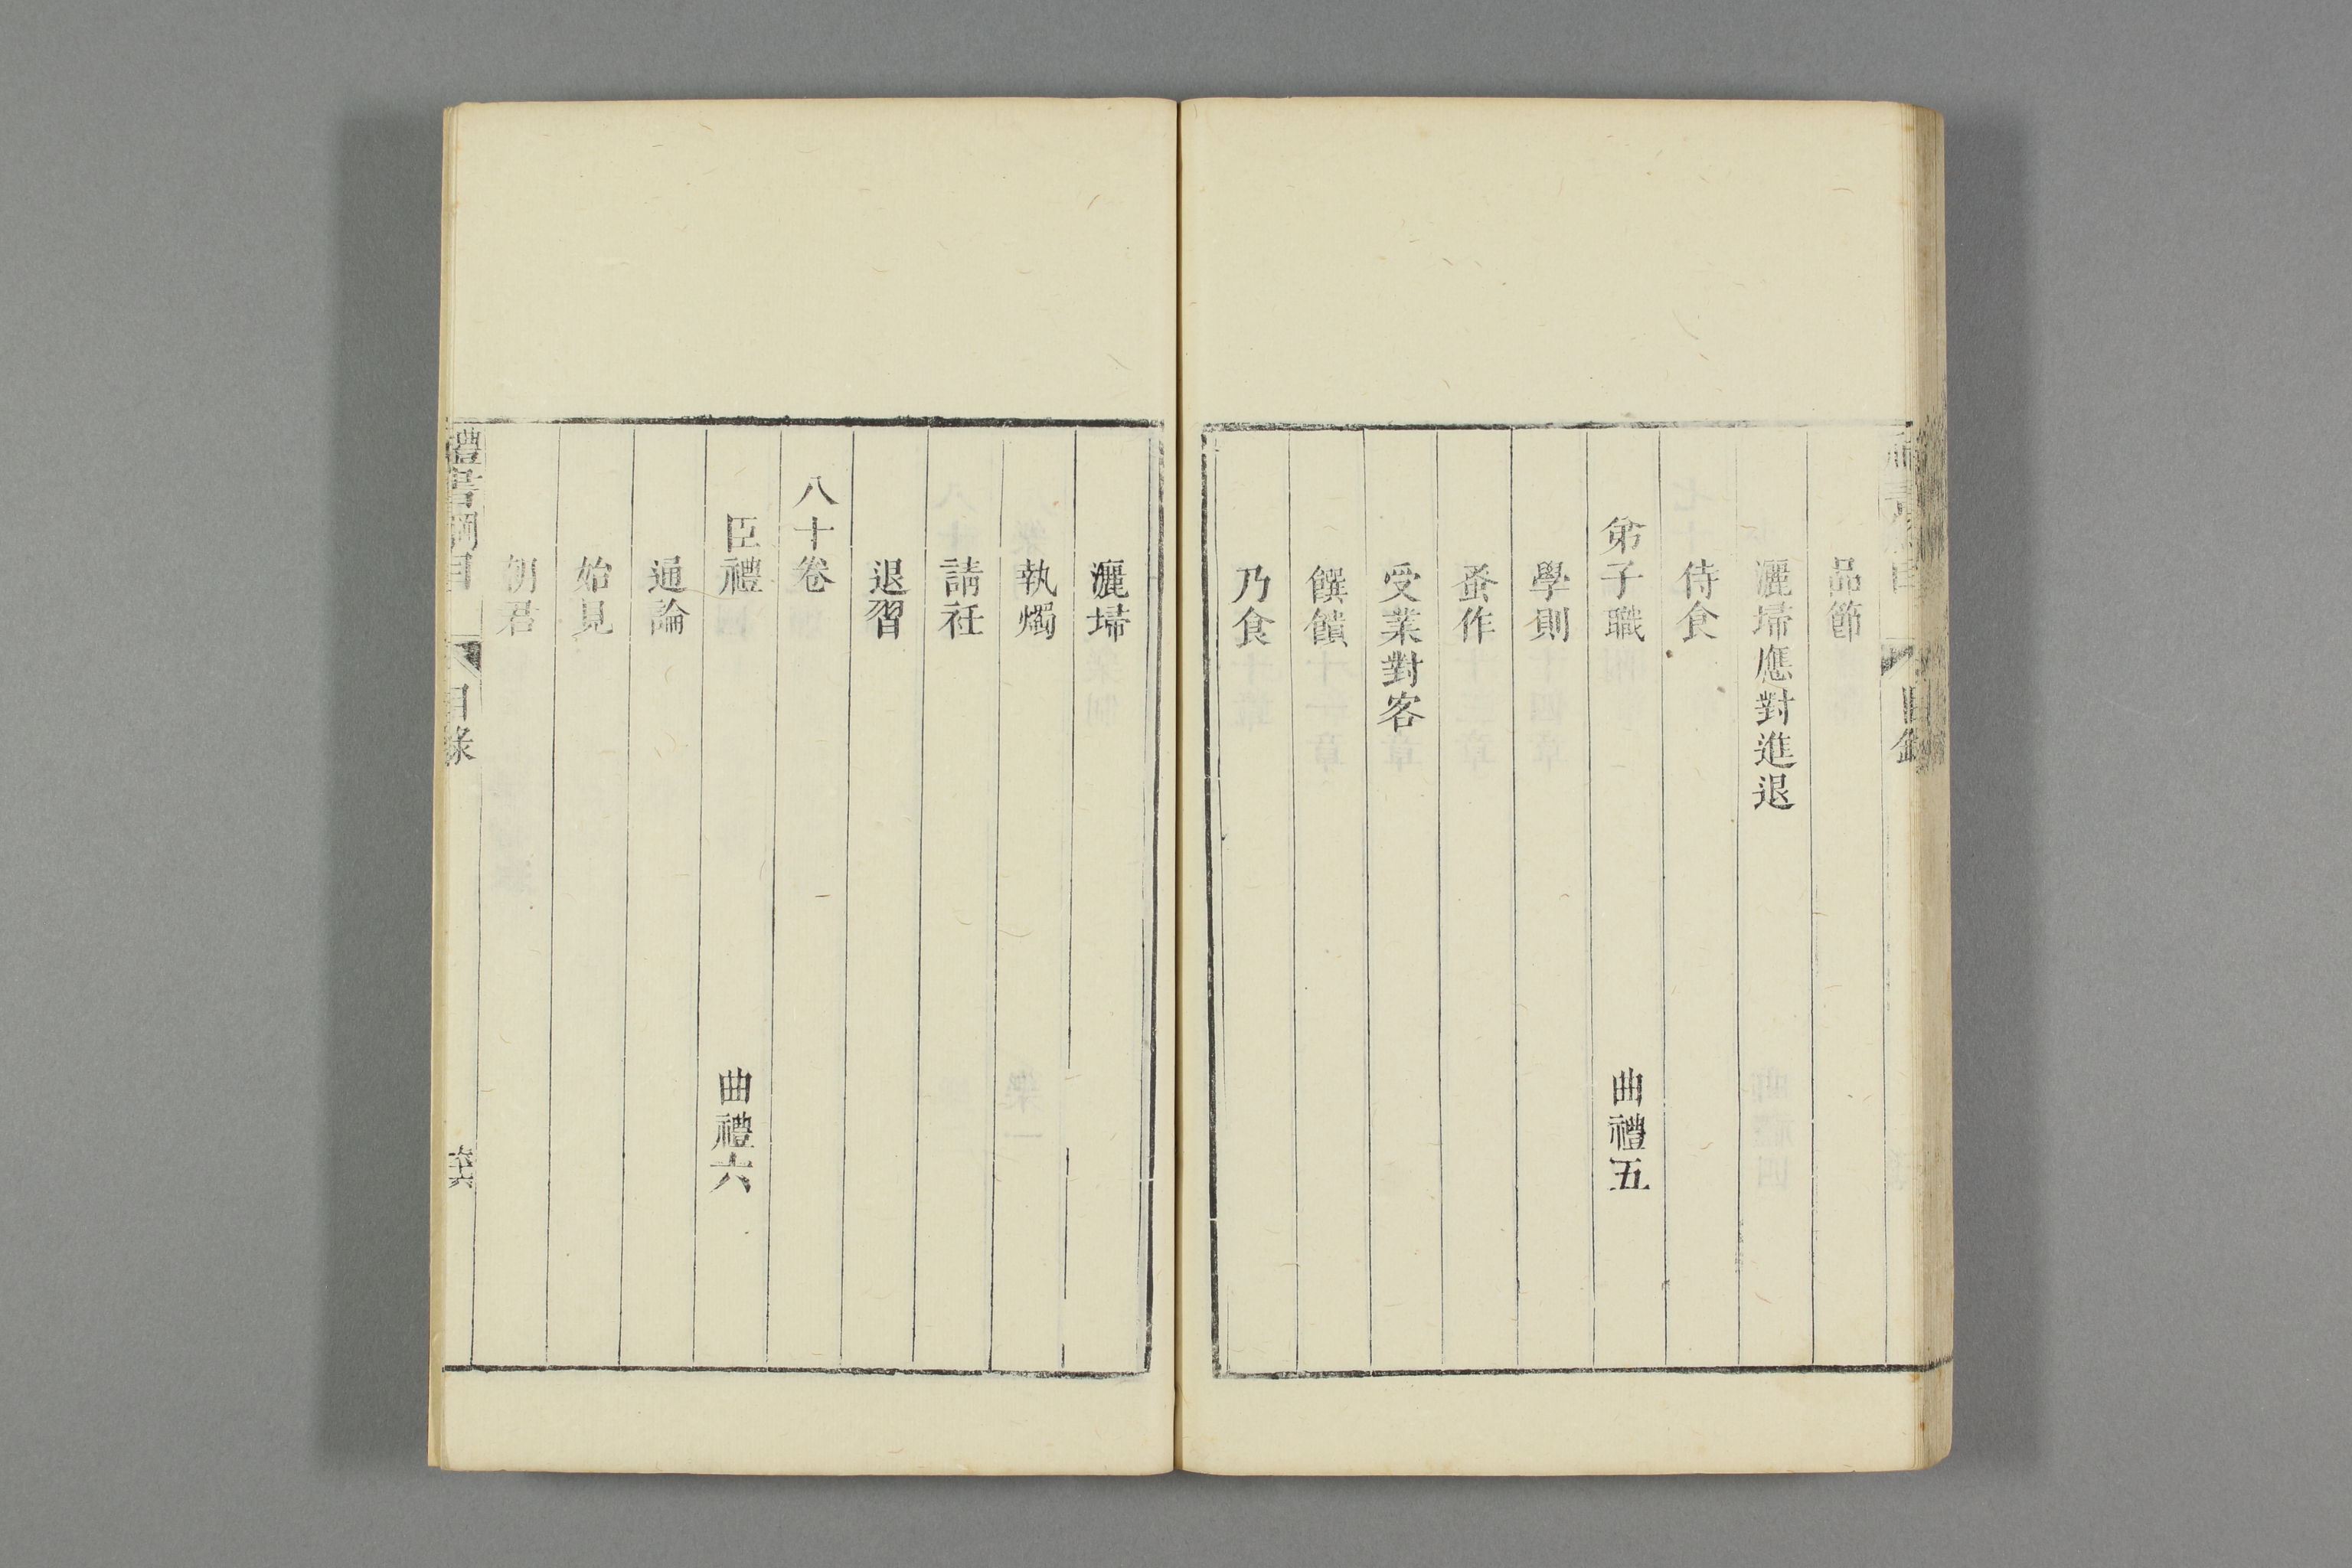 品節
灑埽應對進退
侍食
弟子職 曲禮五
學則
蚤作
受業對客
饌饋
乃食
灑埽
執燭
請衽
退習
八十卷
臣禮 曲禮六
通論
始見
朝君
禮書綱目 目錄